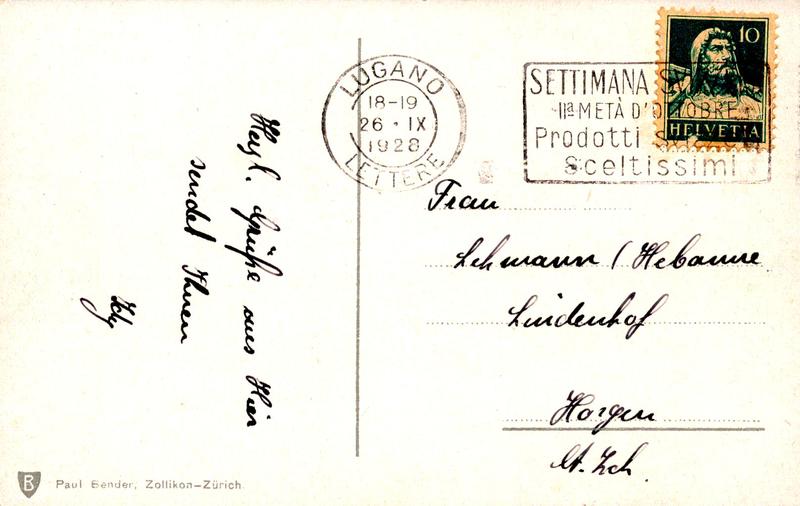 LUGANO
18-19
26 · IX
1928
LETTERE
SETTIMANA
IIª METÀ D'OTTOBRE
Prodotti
Sceltissimi
10
HELVETIA
Herzl. Grüße aus Hier
sendet Ihnen
Frau
Lehmann / Hebamme
Lindenhof
Horgen
Kt. Zch.
B
Paul Bender, Zollikon-Zürich.